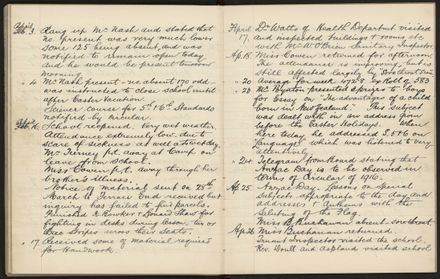 April 3. Rang up Mr Nash and stated that
no. present was very much lower
some 125 being absent, and was
notified to remain open today
and he would be present tomorrow
morning.
" 4 Mr Nash present - no. absent 170 odd
was instructed to close school until
after Easter Vacation.
Science course for 5th 6th Standards
notified by circular.
School reopened. Very wet weather.
Attendance extremely low due to
scare of sickness as well as wet day.
Mr Tierney p.t. away at Camp on
leave from school.
Miss Cowen p.t. away through her
brother's illness.
Notice of material sent on 28th
March to Terrace End received but
inquiry has failed to find parcels.
Punished & Ronald Shaw for
fighting in desks during lesson, two or
three strips across their seats.
" 17. Received some of material required
for Handwork.
April Dr Watts of Health Department visited
17. and inspected buildings & rooms etc
with Mr O'Brien Sanitary Inspector
Ap. 18. Miss Cowen returned for afternoon.
The attendance is improving, but is
still affected largely by Infection Scare
" 20 Average for week 472.8 by Roll of 583
" 23 Mr Boynton presented papers to boys
for essay on "The advantages of a child
born in New Zealand". This subject
was dealt with in an address given
before the Easter Holidays. When
here today he addressed S. 5 & 6 on
"Language" which was listened to very
attentively.
" 24. Telegram from Board stating that
Anzac Day is to be observed in
terms of Circular of 1916.
Ap. 25. Anzac Day. Lessons on special
subjects appropriate to the day and
addresses & Anthems with the
Saluting the Flag.
Miss Buchanan absent sore throat
Ap. 26 Miss Buchanan returned.
Truant Inspector visited the school.
Rev. Doull and Aspland visited school